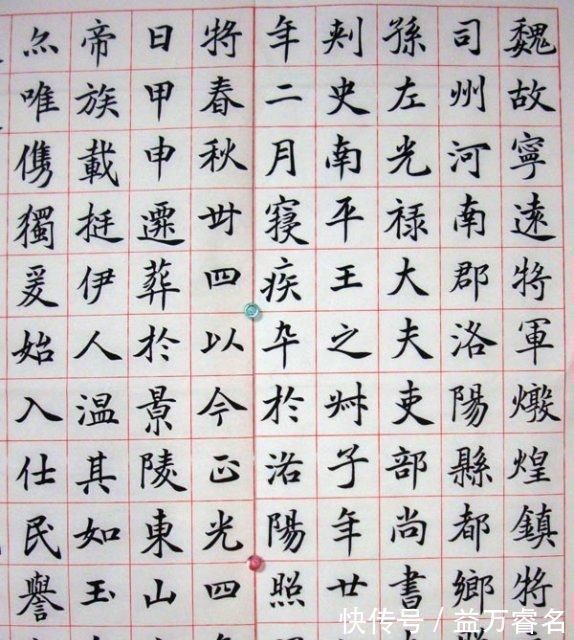 魏故寧遠將軍燉煌鎮將
司州河南郡洛陽縣都鄉
孫左光禄大夫吏部尚書
刾史南平王之叔子年廿
年二月寢疾卒於洛陽照
將春秋丗四以今正光四
日甲申遷葬於景陵東山
帝族載挺伊人温其如玉
亦唯儁獨爰始入仕民譽
快传号/益万睿名